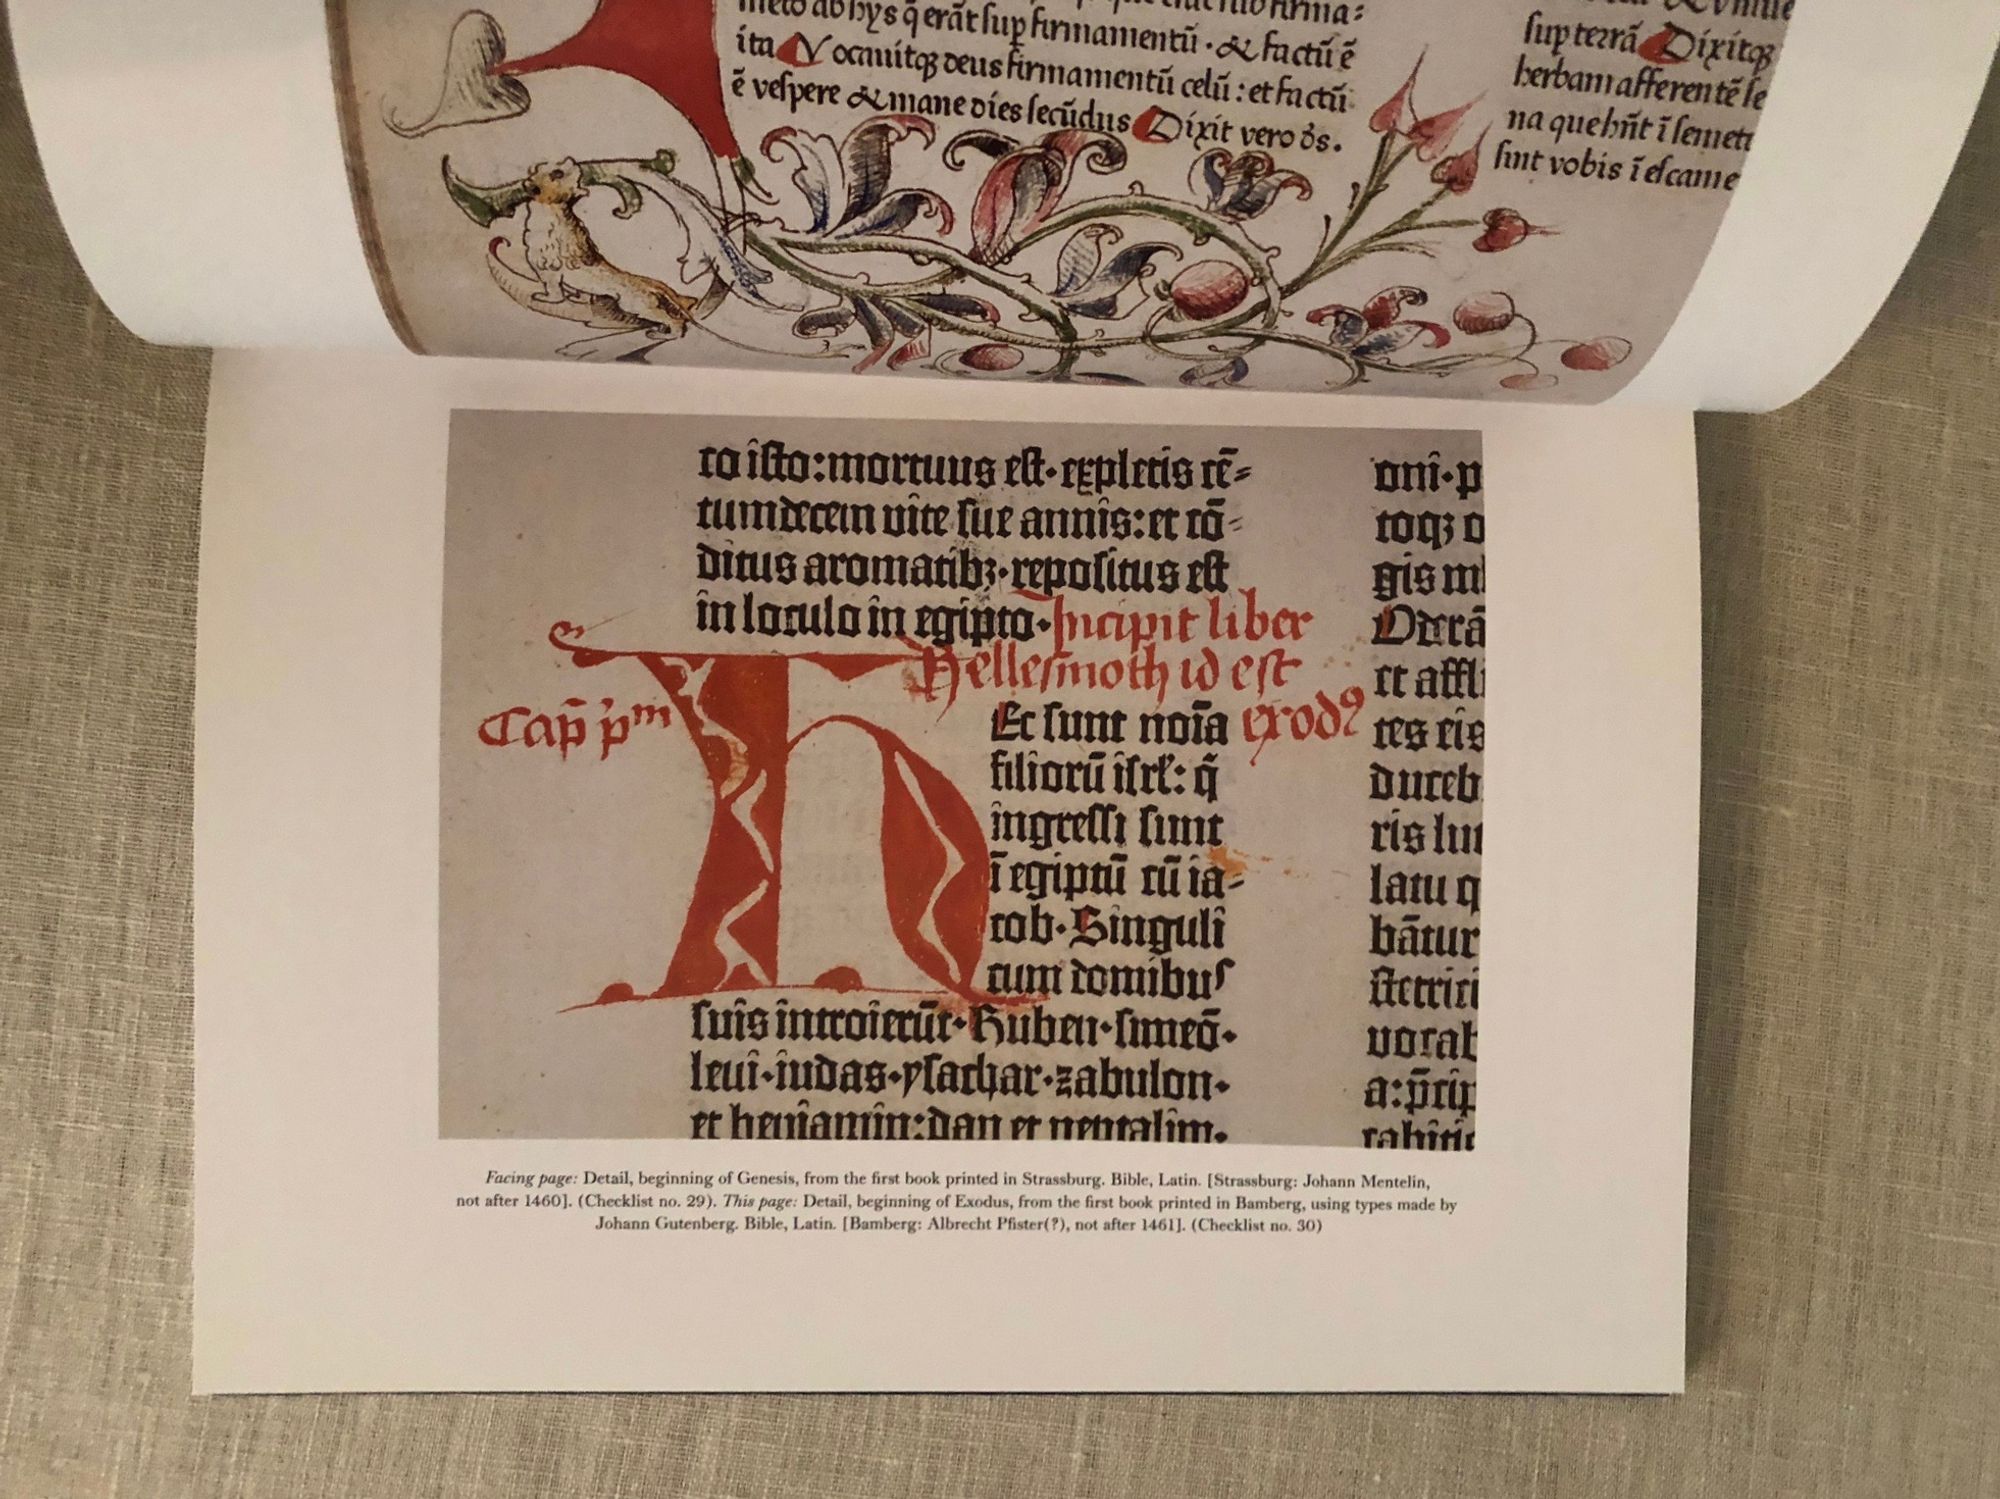 ita Vocauitqꝫ deus firmamentū celū : et factū
ē vespere & mane dies secūdus Dixit vero ds̄.
sup terrā Dixitqꝫ
herbam afferentē se
na que hn̄t ī semeti
sint vobis ī escame
to isto:mortuus est· expletis cē⸗
tumdecem vite sue annis:et cō⸗
ditus aromatibꝫ· repositus est
in loculo in egipto· Incipit liber
Hellesmoth id est
Cap̄ p̄m
Ec sunt noīa exodꝰ
filiorū isrl̄: q̄
ingressi sunt
ī egiptū cū ia⸗
cob· Singuli
cum domibus
suis introierūt· Ruben· simeō·
leui· iudas· ysachar· zabulon·
et beniamin:dan et neptalim·
oni· p
toqꝫ o
gis m
Oderā
et affli
tes eis
duceb
ris lut
latu q
bātur
stetrici
vocat
a: p̄cip
Facing page: Detail, beginning of Genesis, from the first book printed in Strassburg. Bible, Latin. [Strassburg: Johann Mentelin,
not after 1460]. (Checklist no. 29). This page: Detail, beginning of Exodus, from the first book printed in Bamberg, using types made by
Johann Gutenberg. Bible, Latin. [Bamberg: Albrecht Pfister(?), not after 1461]. (Checklist no. 30)